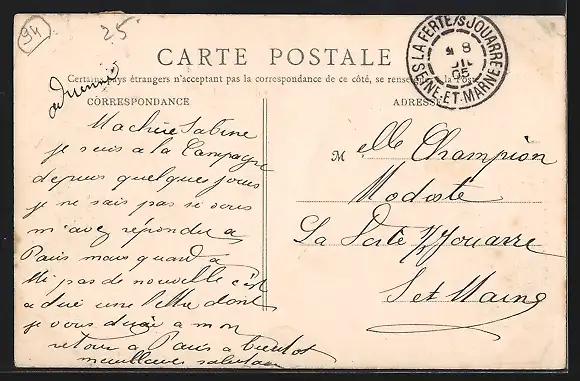 94
25
CARTE POSTALE
Certains pays étrangers n'acceptent pas la correspondance de ce côté, se renseigner à la Poste
CORRESPONDANCE
ADRESSE
LA FERTE/S JOUARRE
8
05
SEINE-ET-MARNE
Ma chère Sabine
je suis a la Campagne
depuis quelques jours
je ne sais pas si vous
m'avez répondu a
Paris mais quand a
Moi pas de nouvelle c'est
a dire une lettre dont
je vous dirai a mon
retour a Paris a bientot
meilleures salutations
Melle Champion
Modiste
La Ferté s/s Jouarre
S et Marne